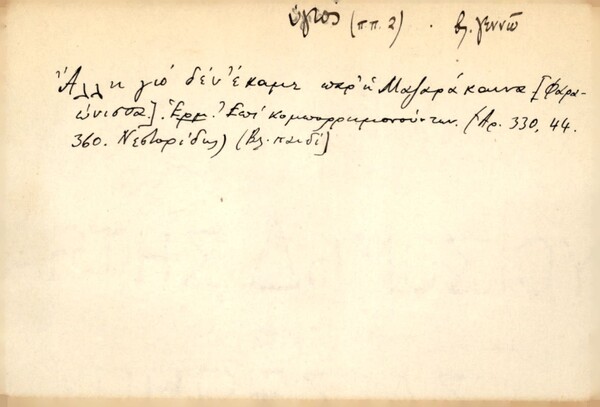 ὑγιός (ππ. 2) . βλ. γεννῶ
Ἄλλη γιό δέν ἔκαμε παρ' ἡ Μαζαράκαινα [Φαρα-
ώνισσα.]. Ἑρμ. Ἐπί κομπορρημονούντων. (Ἀρ. 330, 44.
360. Νεστορίδης) (Βλ. παιδί]